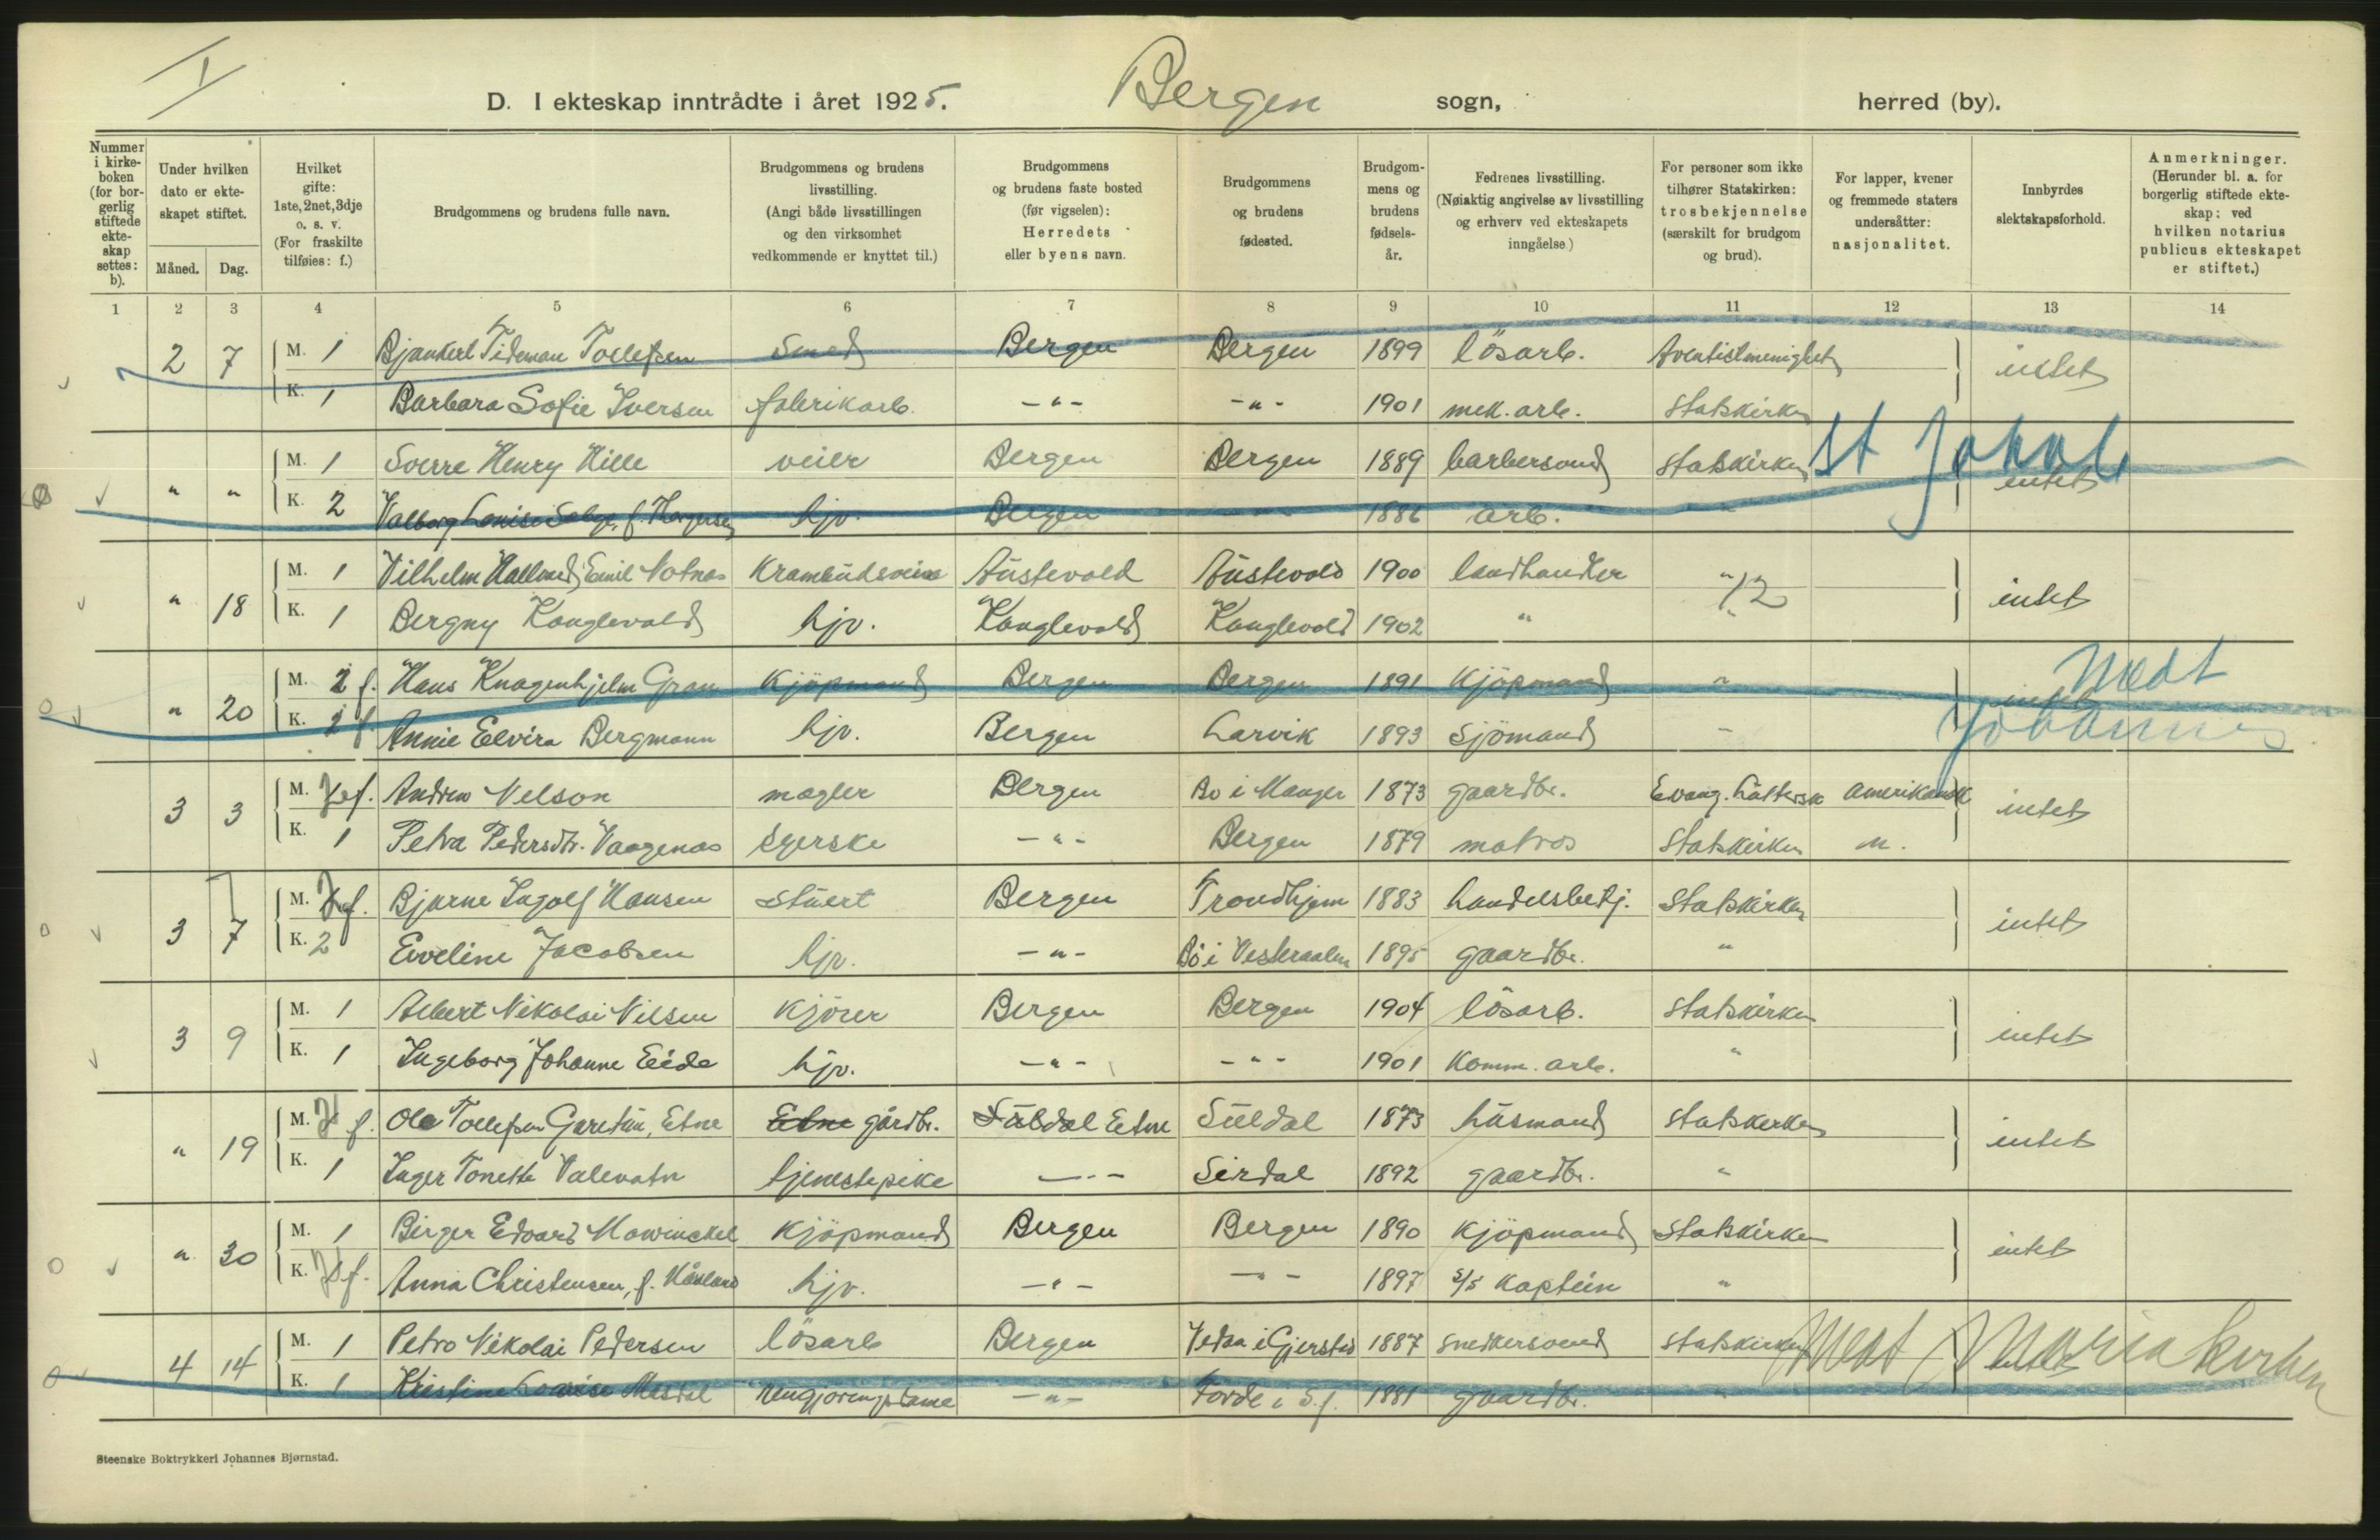 I
D. I ekteskap inntrådte i året 1925. Bergen sogn, herred (by).
Nummer i kirkeboken (for borgerlig stiftede ekteskap settes: b). | Under hvilken dato er ekteskapet stiftet. Måned. Dag. | Hvilket gifte: 1ste, 2net, 3dje o. s. v. (For fraskilte tilføies: f.) | Brudgommens og brudens fulle navn. | Brudgommens og brudens livsstilling. (Angi både livsstillingen og den virksomhet vedkommende er knyttet til.) | Brudgommens og brudens faste bosted (før vigselen): Herredets eller byens navn. | Brudgommens og brudens fødested. | Brudgommens og brudens fødselsår. | Fedrenes livsstilling. (Nøiaktig angivelse av livsstilling og erhverv ved ekteskapets inngåelse.) | For personer som ikke tilhører Statskirken: trosbekjennelse (særskilt for brudgom og brud). | For lapper, kvener og fremmede staters undersåtter: nasjonalitet. | Innbyrdes slektskapsforhold. | Anmerkninger. (Herunder bl. a. for borgerlig stiftede ekteskap: ved hvilken notarius publicus ekteskapet er stiftet.)
1 2 3 4 5 6 7 8 9 10 11 12 13 14
2 7 M. 1 Tideman Tollefsen Smed Bergen Bergen 1899 lösarb. Aventistmenighet intet
K. 1 Barbara Sofie Iversen fabrikarb. -"- -"- 1901 mek. arb. Statskirken
" " M. 1 Sverre Henry Hille veier Bergen Bergen 1889 barbersvend Statskirken St Jakob intet
K. 2 Valborg Louise f. Thorgersen hjv. Bergen 1886 arb. "
" 18 M. 1 Vilhelm Emil Notnæs Krambudsvein Austevold Austevold 1900 landhandler " 12 intet
K. 1 Bergny Kanglevold hjv. Kanglevold Kanglevold 1902 " "
" 20 M. 2 f. Hans Knagenhjelm Gran Kjöpmand Bergen Bergen 1891 Kjöpmand " intet Nedt
K. 2 f. Annie Elvira Bergmann hjv. Bergen Larvik 1893 Sjömand - Johannes
3 3 M. f. Andrew Nelson mægler Bergen Bø i Manger 1873 gaardbr. Evang. Luthersk amerikansk intet
K. 1 Petra Pedersdtr. Vaagenæs Syerske -"- Bergen 1879 matros Statskirken n.
3 7 M. f. Bjarne Ingolf Hansen Stuert Bergen Trondhjem 1883 handelsbetj. Statskirken intet
K. 2 Eveline Jacobsen hjv. -"- Bö i Vesteraalen 1895 gaardbr. "
3 9 M. 1 Albert Nikolai Nilsen Kjörer Bergen Bergen 1904 lösarb. Statskirken intet
K. 1 Ingeborg Johanne Eide hjv. -"- -"- 1901 Komm. arb. "
" 19 M. f. Ole Tollefsen Garetun, Etne Etne gårdbr. Suldal Etne Suldal 1873 husmand Statskirken intet
K. 1 Inger Tonette Valevatn tjenestepike -"- Sirdal 1892 gaardbr. "
" 30 M. 1 Birger Edvard Mowinckel Kjöpmand Bergen Bergen 1890 Kjöpmand Statskirken intet
K. f. Anna Christensen, f. hjv. -"- -"- 1897 s/s Kaptein "
4 14 M. 1 Petro Nikolai Pedersen lösarb Bergen i Gjerstad 1887 Snedkersvend Statskirken Nedt Mariakirken intet
K. 1 Kristine Lovise Mesdal rengjöringsdame -"- Förde i S.f. 1881 gaardbr. "
Steenske Boktrykkeri Johannes Bjørnstad.